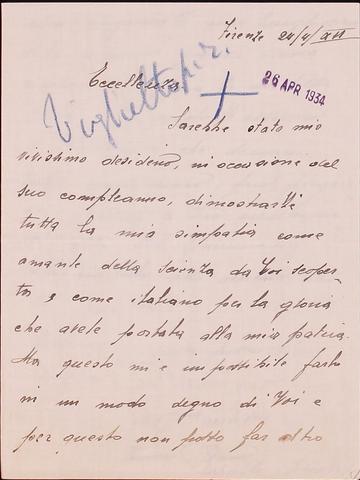 Firenze 24/4/XII
Eccellenza
26 APR 1934
Sarebbe stato mio
vivissimo desiderio, in occasione del
suo compleanno, dimostrarle
tutta la mia simpatia come
amante della scienza da Voi scoper-
ta e come italiano per la gloria
che avete portata alla mia patria.
Ma questo mi è impossibile farlo
in un modo degno di Voi e
per questo non posso far altro